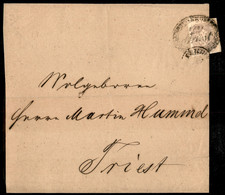 Wolgeboren
Herrn Martin Hummel
Triest